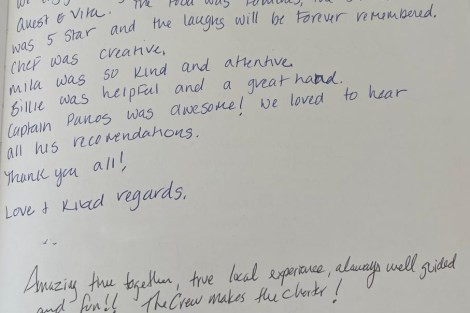 The food was
Quest & Vita.
was 5 star and the laughs will be Forever remembered.
Chef was creative.
Mila was so kind and attentive.
Billie was helpful and a great hand.
Captain Panos was awesome! We loved to hear
all his recomendations.
Thank you all!
Love & Kind regards.
Amazing time together, true local experience, always well guided
and fun!! The Crew makes the charter!